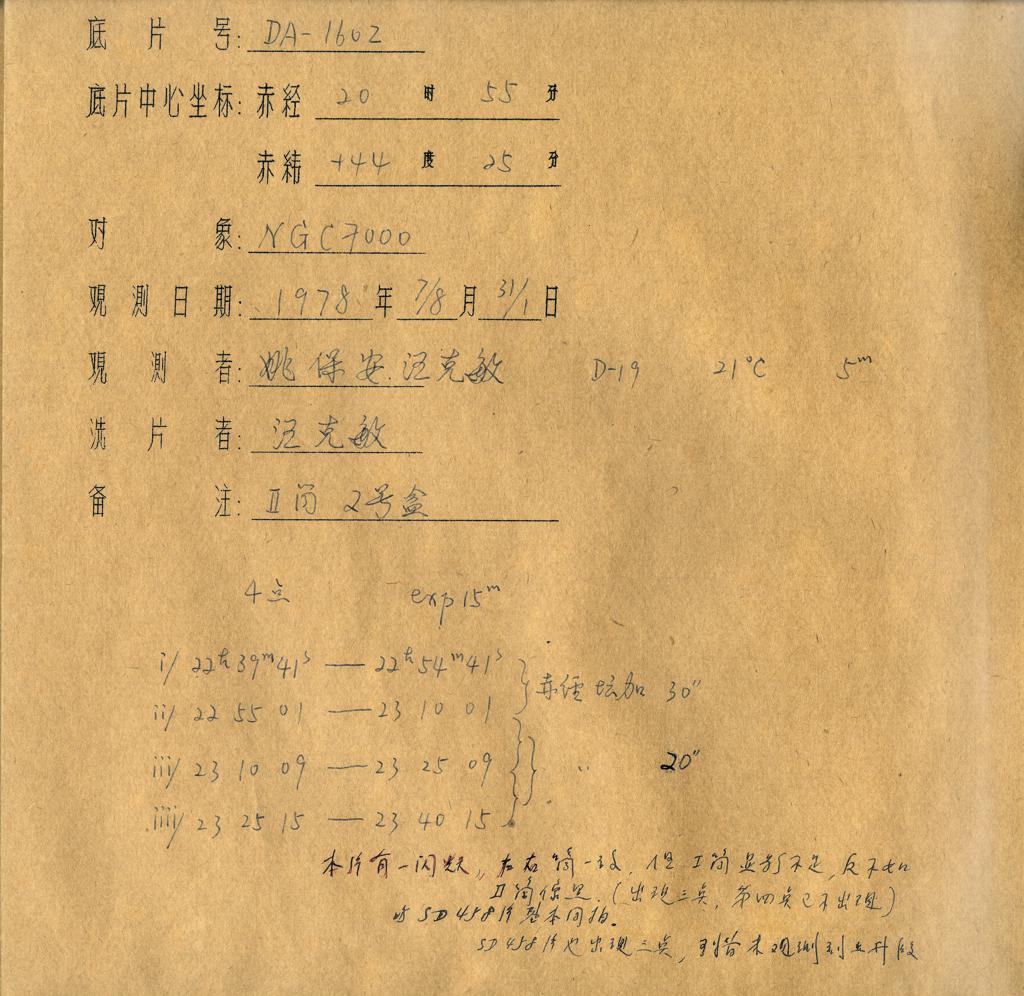 底片号: DA-1602
底片中心坐标: 赤经 20 时 55 分
赤纬 +44 度 25 分
对象: NGC7000
观测日期: 1978 年 7/8 月 31/1 日
观测者: 姚保安 汪克敏 D-19 21°C 5ᵐ
洗片者: 汪克敏
备注: Ⅱ筒 2号盒
4点 exp 15ᵐ
i/ 22ʰ39ᵐ41ˢ — 22ʰ54ᵐ41ˢ
赤经 加 30″
ii/ 22 55 01 — 23 10 01
iii/ 23 10 09 — 23 25 09
〃 20″
iiii/ 23 25 15 — 23 40 15
本片有一闪点, 左右筒一致, 但Ⅰ筒显影不足, 反不如
Ⅱ筒 (出现三点, 第四点已不出现)
与 SD 458片基本同拍.
SD 458片也出现三点, 未观测到上升段